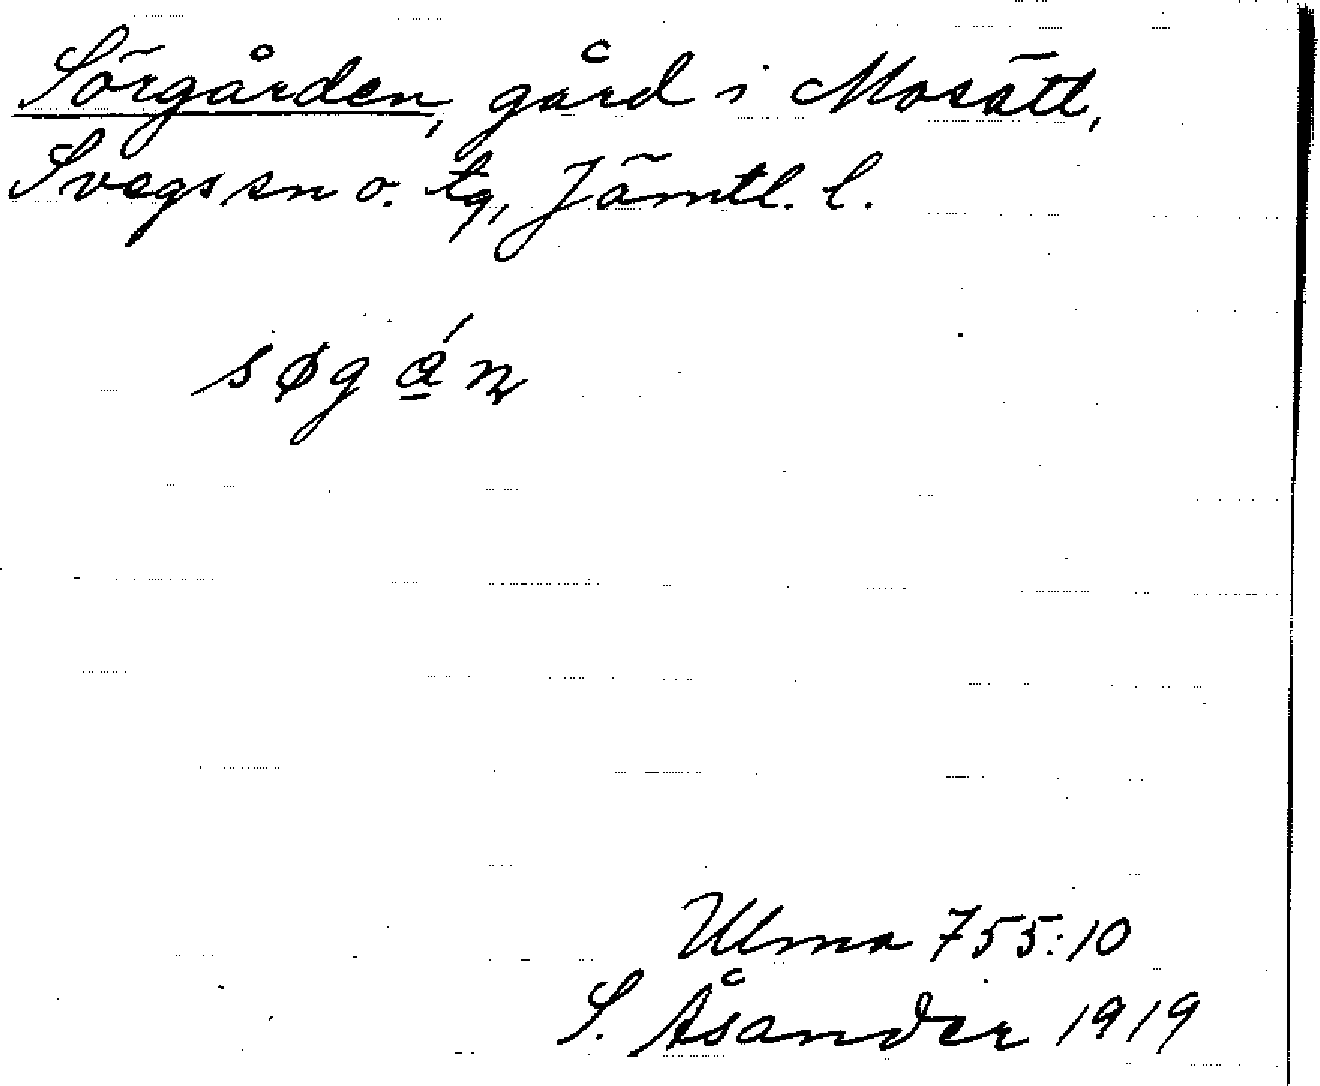 Sörgården, gård i Mosätt,
Svegs sn o. tg, Jämtl. l.
søgá̱n
Ulma 755:10
S. Åsander 1919